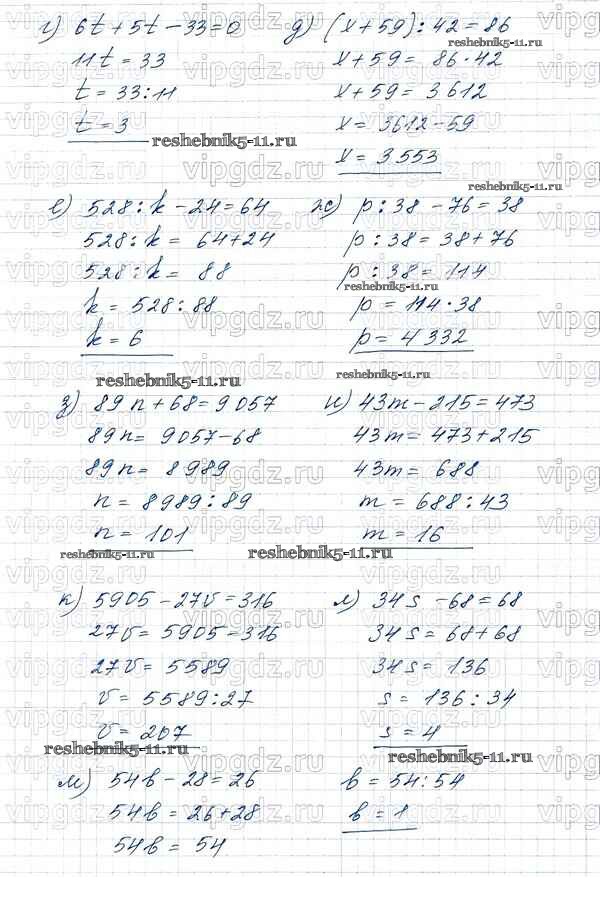 г) 6t + 5t - 33 = 0
11t = 33
t = 33 : 11
t = 3
д) (x + 59) : 42 = 86
x + 59 = 86 · 42
x + 59 = 3612
x = 3612 - 59
x = 3553
е) 528 : k - 24 = 64
528 : k = 64 + 24
528 : k = 88
k = 528 : 88
k = 6
ж) p : 38 - 76 = 38
p : 38 = 38 + 76
p : 38 = 114
p = 114 · 38
p = 4332
з) 89n + 68 = 9057
89n = 9057 - 68
89n = 8989
n = 8989 : 89
n = 101
и) 43m - 215 = 473
43m = 473 + 215
43m = 688
m = 688 : 43
m = 16
к) 5905 - 27v = 316
27v = 5905 = 316
27v = 5589
v = 5589 : 27
v = 207
л) 34s - 68 = 68
34s = 68 + 68
34s = 136
s = 136 : 34
s = 4
м) 54b - 28 = 26
54b = 26 + 28
54b = 54
b = 54 : 54
b = 1
reshebnik5-11.ru
vipgdz.ru